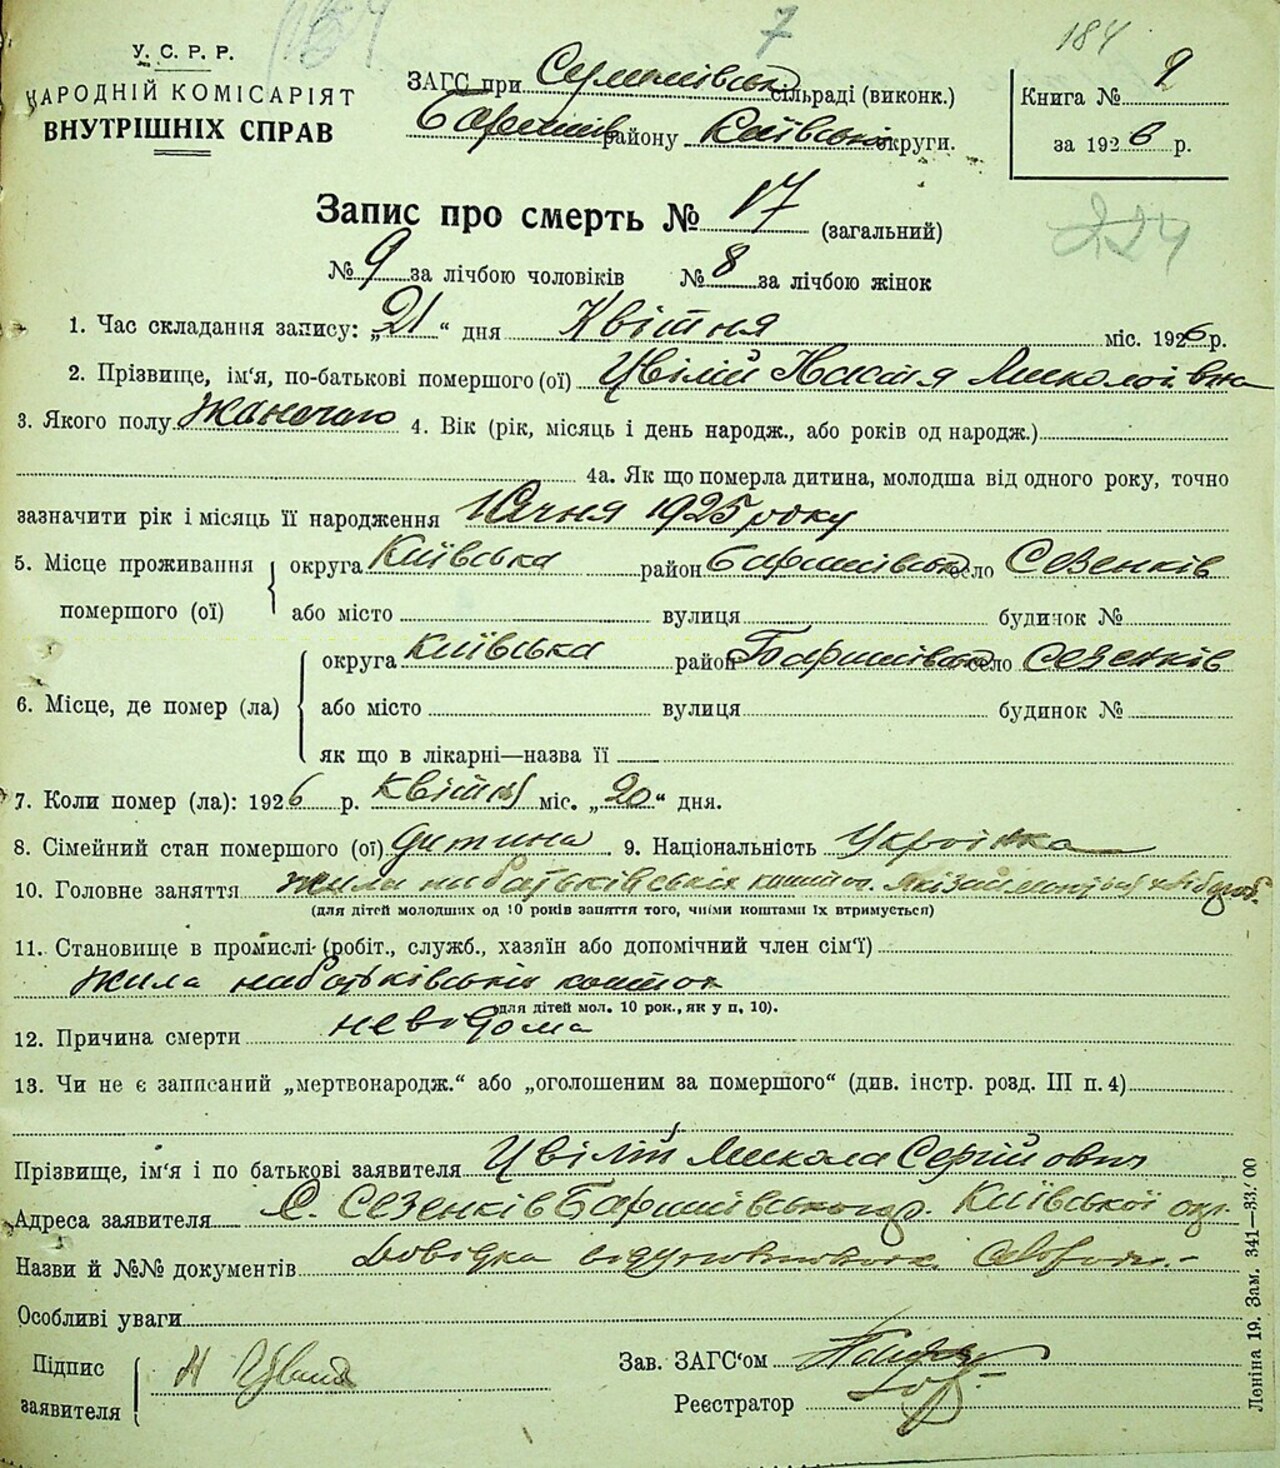 184
7
184
У. С. Р. Р.
НАРОДНІЙ КОМІСАРІЯТ
ВНУТРІШНІХ СПРАВ
ЗАГС при Семенівськ сільраді (виконк.)
Баришів району Київськ округи.
Книга № 2
за 1926 р.
224
Запис про смерть № 17 (загальний)
№ 9 за лічбою чоловіків № 8 за лічбою жінок
1. Час складання запису: „21“ дня Квітня міс. 1926 р.
2. Прізвище, ім‘я, по-батькові помершого (ої) Цвілій Настя Миколаївна
3. Якого полу Жіночого 4. Вік (рік, місяць і день народж., або років од народж.)
4а. Як що померла дитина, молодша від одного року, точно
зазначити рік і місяць її народження Січня 1925 року
5. Місце проживання помершого (ої) округа Київська район Баришівськ село Сезенків
або місто вулиця будинок №
6. Місце, де помер (ла) округа Київська район Баришівськ село Сезенків
або місто вулиця будинок №
як що в лікарні—назва її
7. Коли помер (ла): 1926 р. Квітня міс. „20“ дня.
8. Сімейний стан помершого (ої) дитина 9. Національність Українка
10. Головне заняття жила на батьківських кошт
(для дітей молодших од 10 років заняття того, чиїми коштами їх втримується)
11. Становище в промислі (робіт., служб., хазяїн або допомічний член сім‘ї)
жила на батьківськи кошток
(для дітей мол. 10 рок., як у п. 10).
12. Причина смерти невідома
13. Чи не є записаний „мертвонародж.“ або „оголошеним за помершого“ (див. інстр. розд. III п. 4)
Прізвище, ім‘я і по батькові заявителя Цвілій Микола Сергійович
Адреса заявителя С. Сезенків Баришівського р. Київської окр.
Назви й №№ документів Довідка
Особливі уваги
Підпис заявителя Н Цвілий
Зав. ЗАГС‘ом
Реєстратор
Леніна 19. Зам. 341—33.